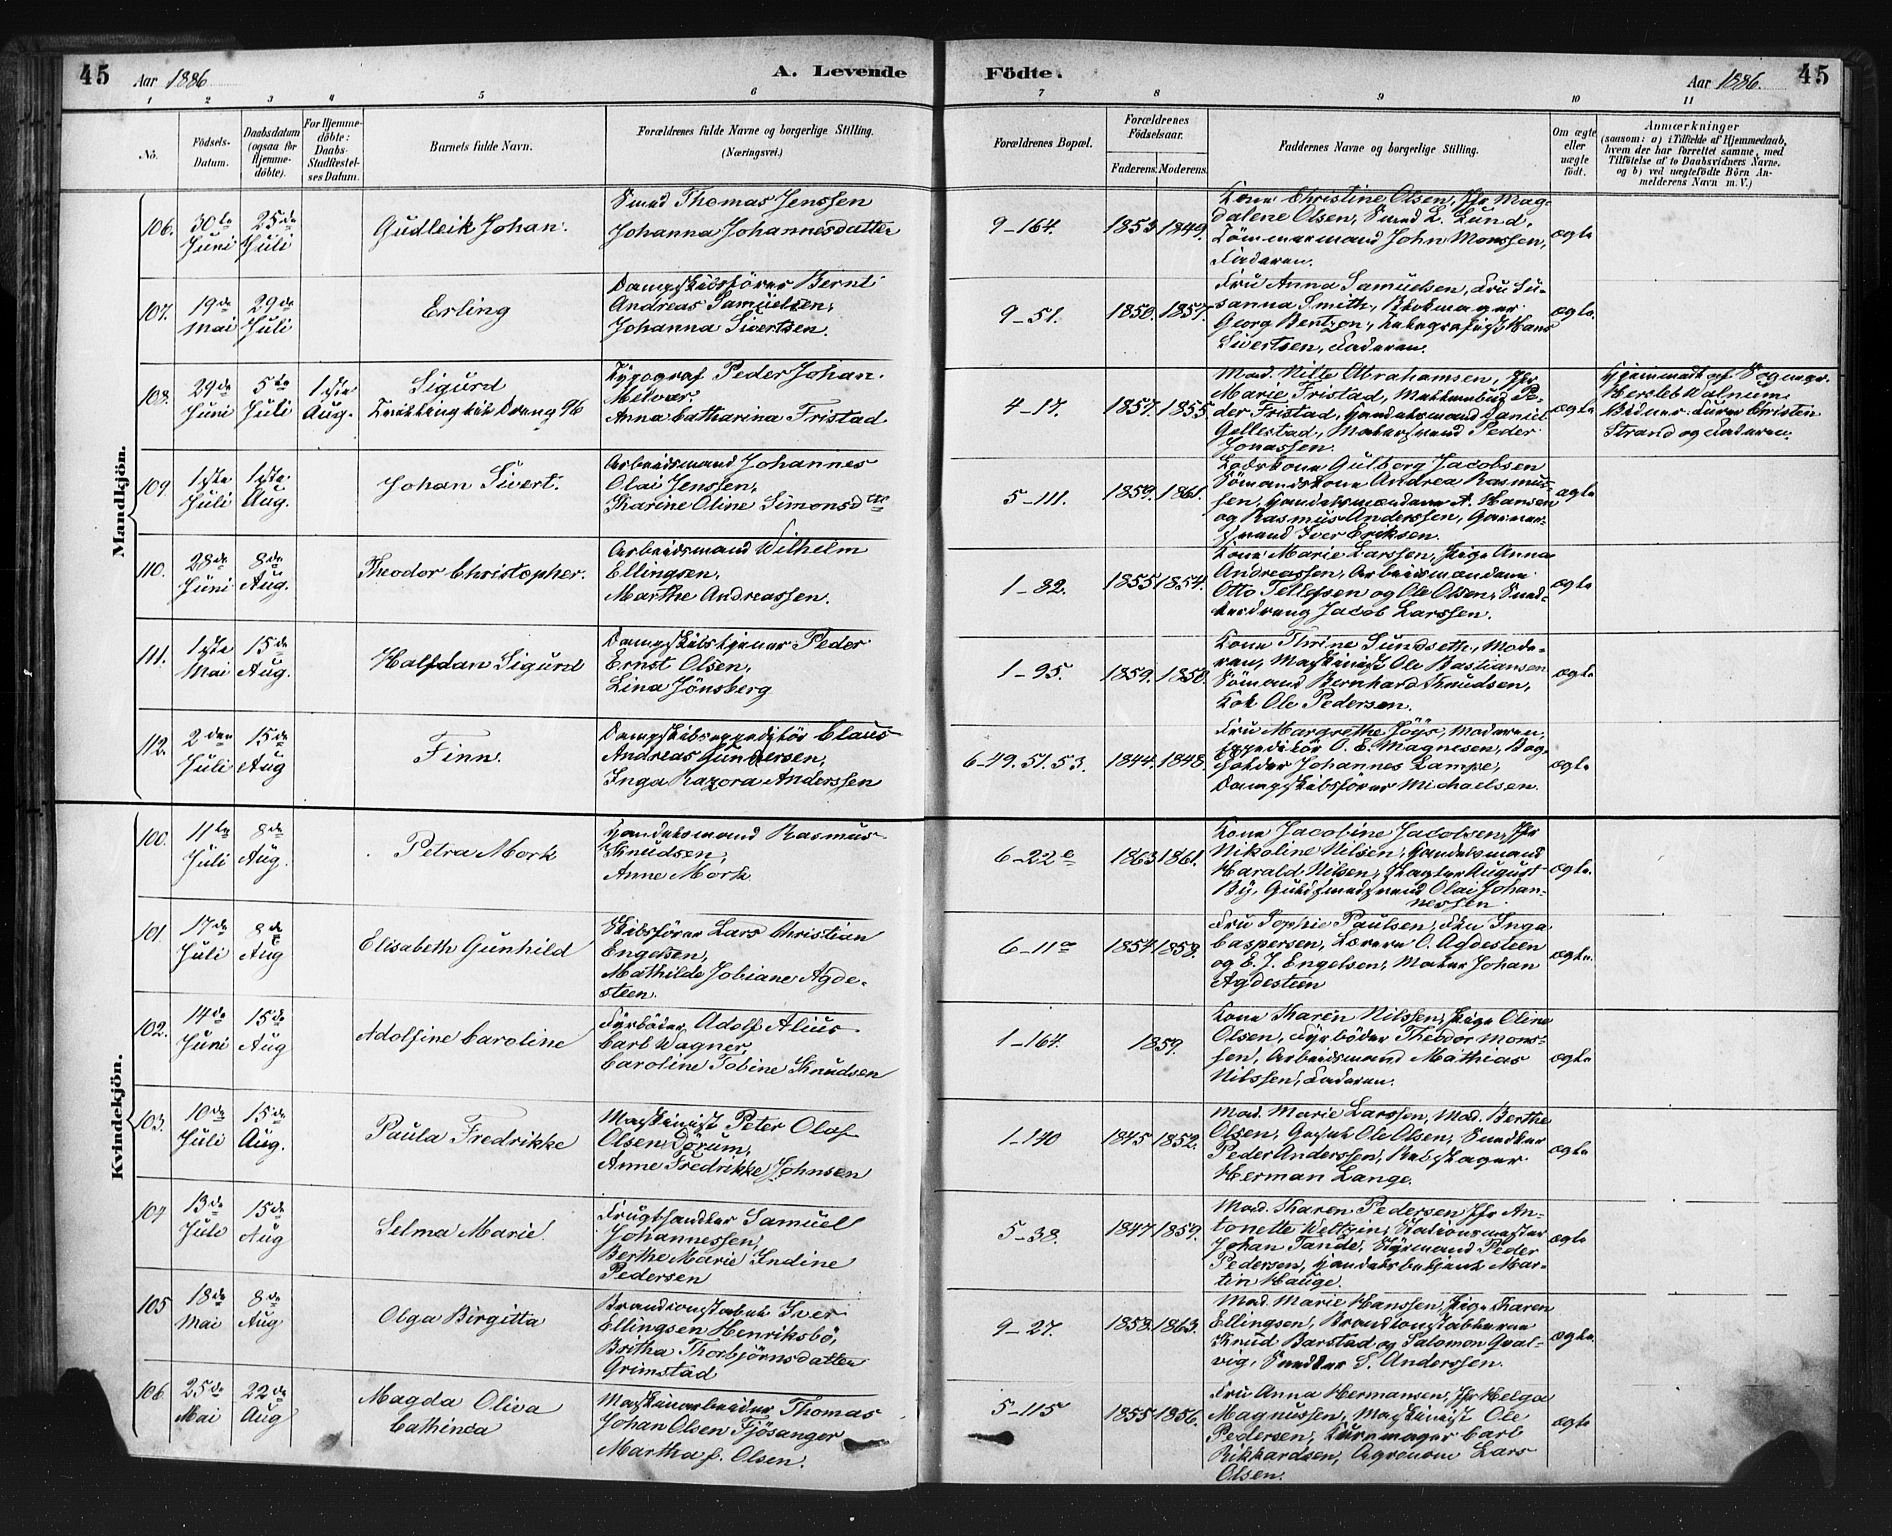 45 Aar 1886 A. Levende Födte. Aar 1886. 45
1 2 3 4 5 6 7 8 9 10 11
No.
Födsels-Datum.
Daabsdatum (ogsaa for Hjemme-döbte).
For Hjemme-döbte: Daabs-Stadfæstel-ses Datum.
Barnets fulde Navn.
Forældrenes fulde Navne og borgerlige Stilling.
(Næringsvei.)
Forældrenes Bopæl.
Forældrenes Födselsaar.
Faderens. Moderens.
Faddernes Navne og borgerlige Stilling.
Om ægte eller uægte födt.
Anmærkninger
(saasom: a) i Tilfælde af Hjemmedaab, hvem der har forrettet samme, med Tilföielse af to Daabsvidners Navne, og b) ved uægtefödte Börn An-melderens Navn m. V.)
Mandkjön.
106. 30te Juni 25de Juli
Gudleik Johan.
Smed Thomas Jenssen
Johanna Johannesdatter
9-164. 1853 1849.
Kone Christine Olsen, Pfr Mag-
dalene Olsen, Smed L. Lund,
Tömmermand John Monssen,
Faderen.
ægte
107. 19de Mai 29de Juli
Erling
Dampskibsförer Bernt
Andreas Samuelsen,
Johanna Sivertsen.
9-51. 1850. 1857.
Fru Anna Samuelsen, Fru Su-
sanna Smith,
Georg Bentzon, Telegrafist Hans
Sivertsen, Faderen.
ægte.
108. 29de Juni 5te Juli 1ste Aug.
Sigurd
Tvilling til Dreng 96
Typograf Peder Johan
Melvær,
Anna Catharina Fristad
4-17. 1857. 1855
Mad. Nille Abrahamsen, Pfr
Marie Fristad, Pe-
der Fristad, Handelsmand Daniel
Gellestad, Malersvend Peder
Jonassen.
ægte
Hjemmedt af Sogнepr.
Hersleb Walnum.
Vidner: Christen
Strand og Faderen.
109. 1ste Juli 1ste Aug.
Johan Sivert.
Arbeidsmand Johannes
Olai Jenssen,
Karine Oline Simonsdtr
5-111. 1859. 1861.
Gulborg Jacobsen
Sömandskone Andrea Rasmus-
sen, Handelsmændene A. Hansen
og Rasmus Anderssen, Garver-
svend Iver Eriksen.
ægte
110. 28de Juni 8de Aug.
Theodor Christopher.
Arbeidsmand Wilhelm
Ellingsen,
Marthe Andreassen.
1-82. 1855 1854.
Kone Marie Larssen, Pige Anna
Andreassen, Arbeidsmændene
Otto Tellefsen og Ole Olsen, Sned-
kerdreng Jacob Larssen.
ægte
111. 1ste Mai 15de Aug.
Halfdan Sigurd
Dampskibstjener Peder
Ernst Olsen,
Lina Jönsberg
1-95. 1859. 1850.
Kone Thrine Sundseth, Mode-
ren, Maskinist Ole Bastiansen
Sömand Bernhard Knudsen,
Kok Ole Pedersen.
ægte
112. 2den Juli 15de Aug
Finn.
Dampskibsexpeditör Claus
Andreas Gundersen,
Inga Razora Anderssen
6-49. 51. 53. 1844. 1848.
Fru Margrethe Höys, Moderen,
Expeditör O. E. Magnesen, Bog-
holder Johannes Lampe,
Dampskibsförer Michaelsen.
ægte
Kvindekjön.
100. 11te Juli 8de Aug.
Petra Mork
Handelsmand Rasmus
Knudsen,
Anne Mork.
6-22c 1863 1861.
Kone Jacobine Jacobsen, Pfr
Nikoline Nilsen, Handelsmand
Harald Nilsen, Slagter August
By, Guldsmedsvend Olai Johan-
nessen.
ægte.
101. 17de Juli 8de Aug
Elisabeth Gunhild
Skibsförer Lars Christian
Engelsen,
Mathilde Jobiane Agde-
steen.
6-11a 1854 1858.
Fru Sophie Paulsen, Fru Inga
Caspersen, Lærern O. Agdesteen
og E. J. Engelsen, Maler Johan
Agdesteen
ægte.
102. 14de Juni 15de Aug
Adolfine Caroline
Fyrböder Adolf Alius
Carl Wagner,
Caroline Tobine Knudsen
1-164. 1859.
Kone Karen Nilssen, Pige Oline
Olsen, Fyrböder Theodor Mons-
sen, Arbeidsmand Mathias
Nilssen, Faderen.
ægte
103. 10de Juli 15de Aug.
Paula Fredrikke
Maskinist Peter Olaf
Olsen Dörum,
Anne Fredrikke Johnsen
1-140 1845 1852.
Mad. Marie Larssen, Mad. Berthe
Olsen, Ole Olsen, Snedker
Peder Anderssen, Rebslager
Herman Lange.
ægte
104 13de Juli 15de Aug
Selma Marie
Frugthandler Samuel
Johannessen,
Berthe Marie Indine
Pedersen
5-38. 1847 1859.
Mad. Karen Pedersen Pfr An-
tonette Weltzin, Stationsmester
Johan Tande, Styrmand Peder
Pedersen, Handelsbetjent Mar-
tin Hauge.
ægte
105 18de Mai 8de Aug
Olga Birgitta
Brandconstabel Iver
Ellingsen Henriksbö,
Britha Thorbjörnsdatter
Grimstad
9-27. 1858. 1863.
Mad. Marie Hanssen, Pige Karen
Ellingsen, Brandconstablerne
Knud Barstad og Salomon Gral-
vig, Snedker S. Anderssen.
ægte.
106. 25de Mai 22de Aug
Magda Oliva
Cathinca
Maskinarbeider Thomas
Johan Olsen Fjösanger
Martha f. Olsen.
5-115 1855 1856.
Fru Anna Hermansen, Pfr Helga
Magnussen, Maskinist Ole
Pedersen, Kurvmager Carl
Rikkardsen, Agronom Lars
Olsen.
ægte